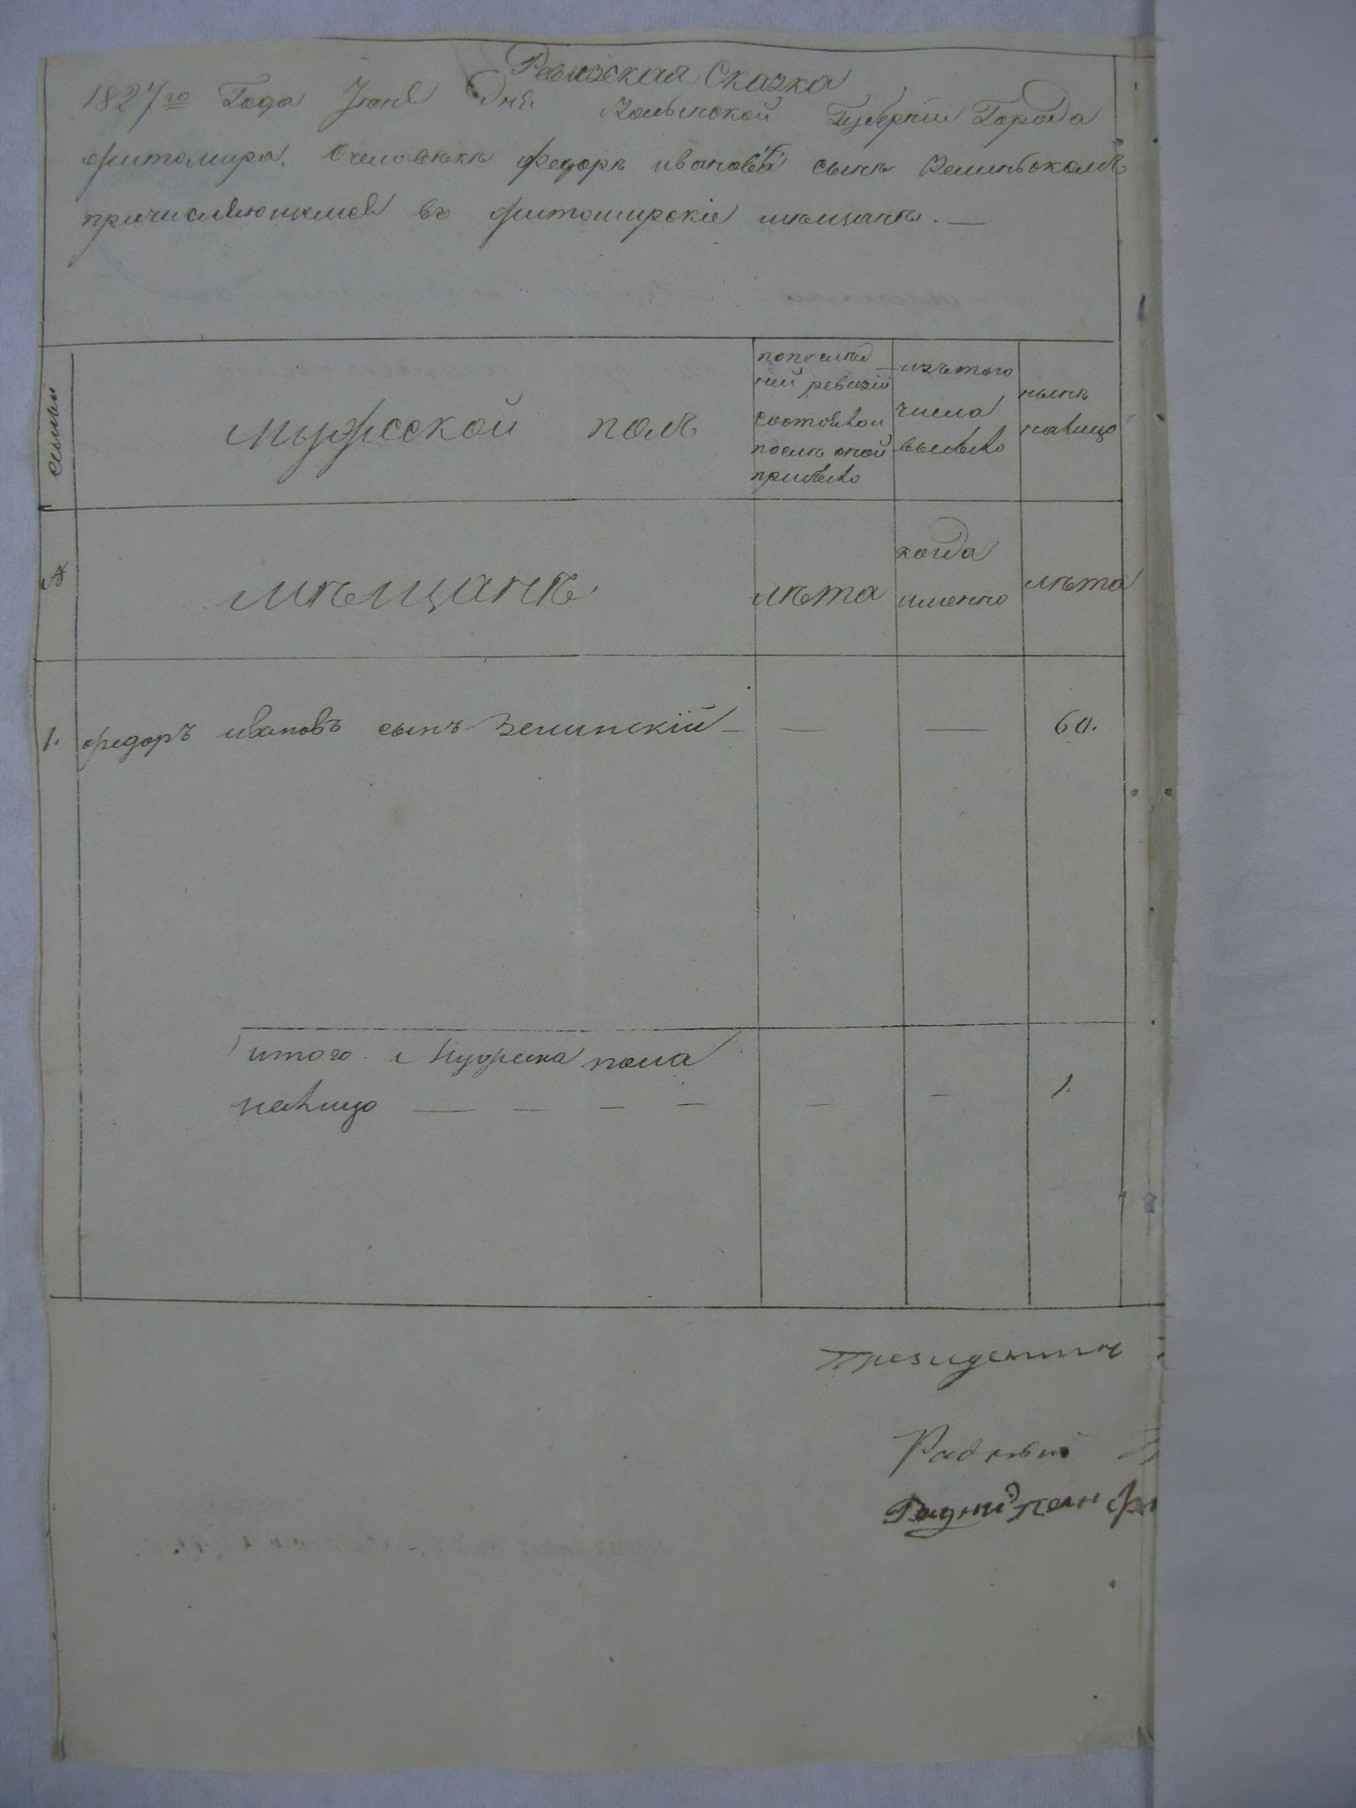 Ревизская Сказка
1827го Года Июня Дня Волынской Губернии Города
Житомира, О человѣкѣ Федорѣ Ивановѣ сынѣ Зелинскомъ
причисляющемся въ Житомирские мѣщане. —
семьи
мужеской полъ
попослѣд
ней ревизии
состояло и
послѣ оной
прибыло
изътого
числа
выбыло
нынѣ
налицо
мѣщанѣ
лѣта
когда
именно
лѣта
1. Федоръ Ивановъ сынъ Зелинский — — — 60.
итого мужеска пола
налицо — — — — — — 1.
Президентъ
Радный
Радний